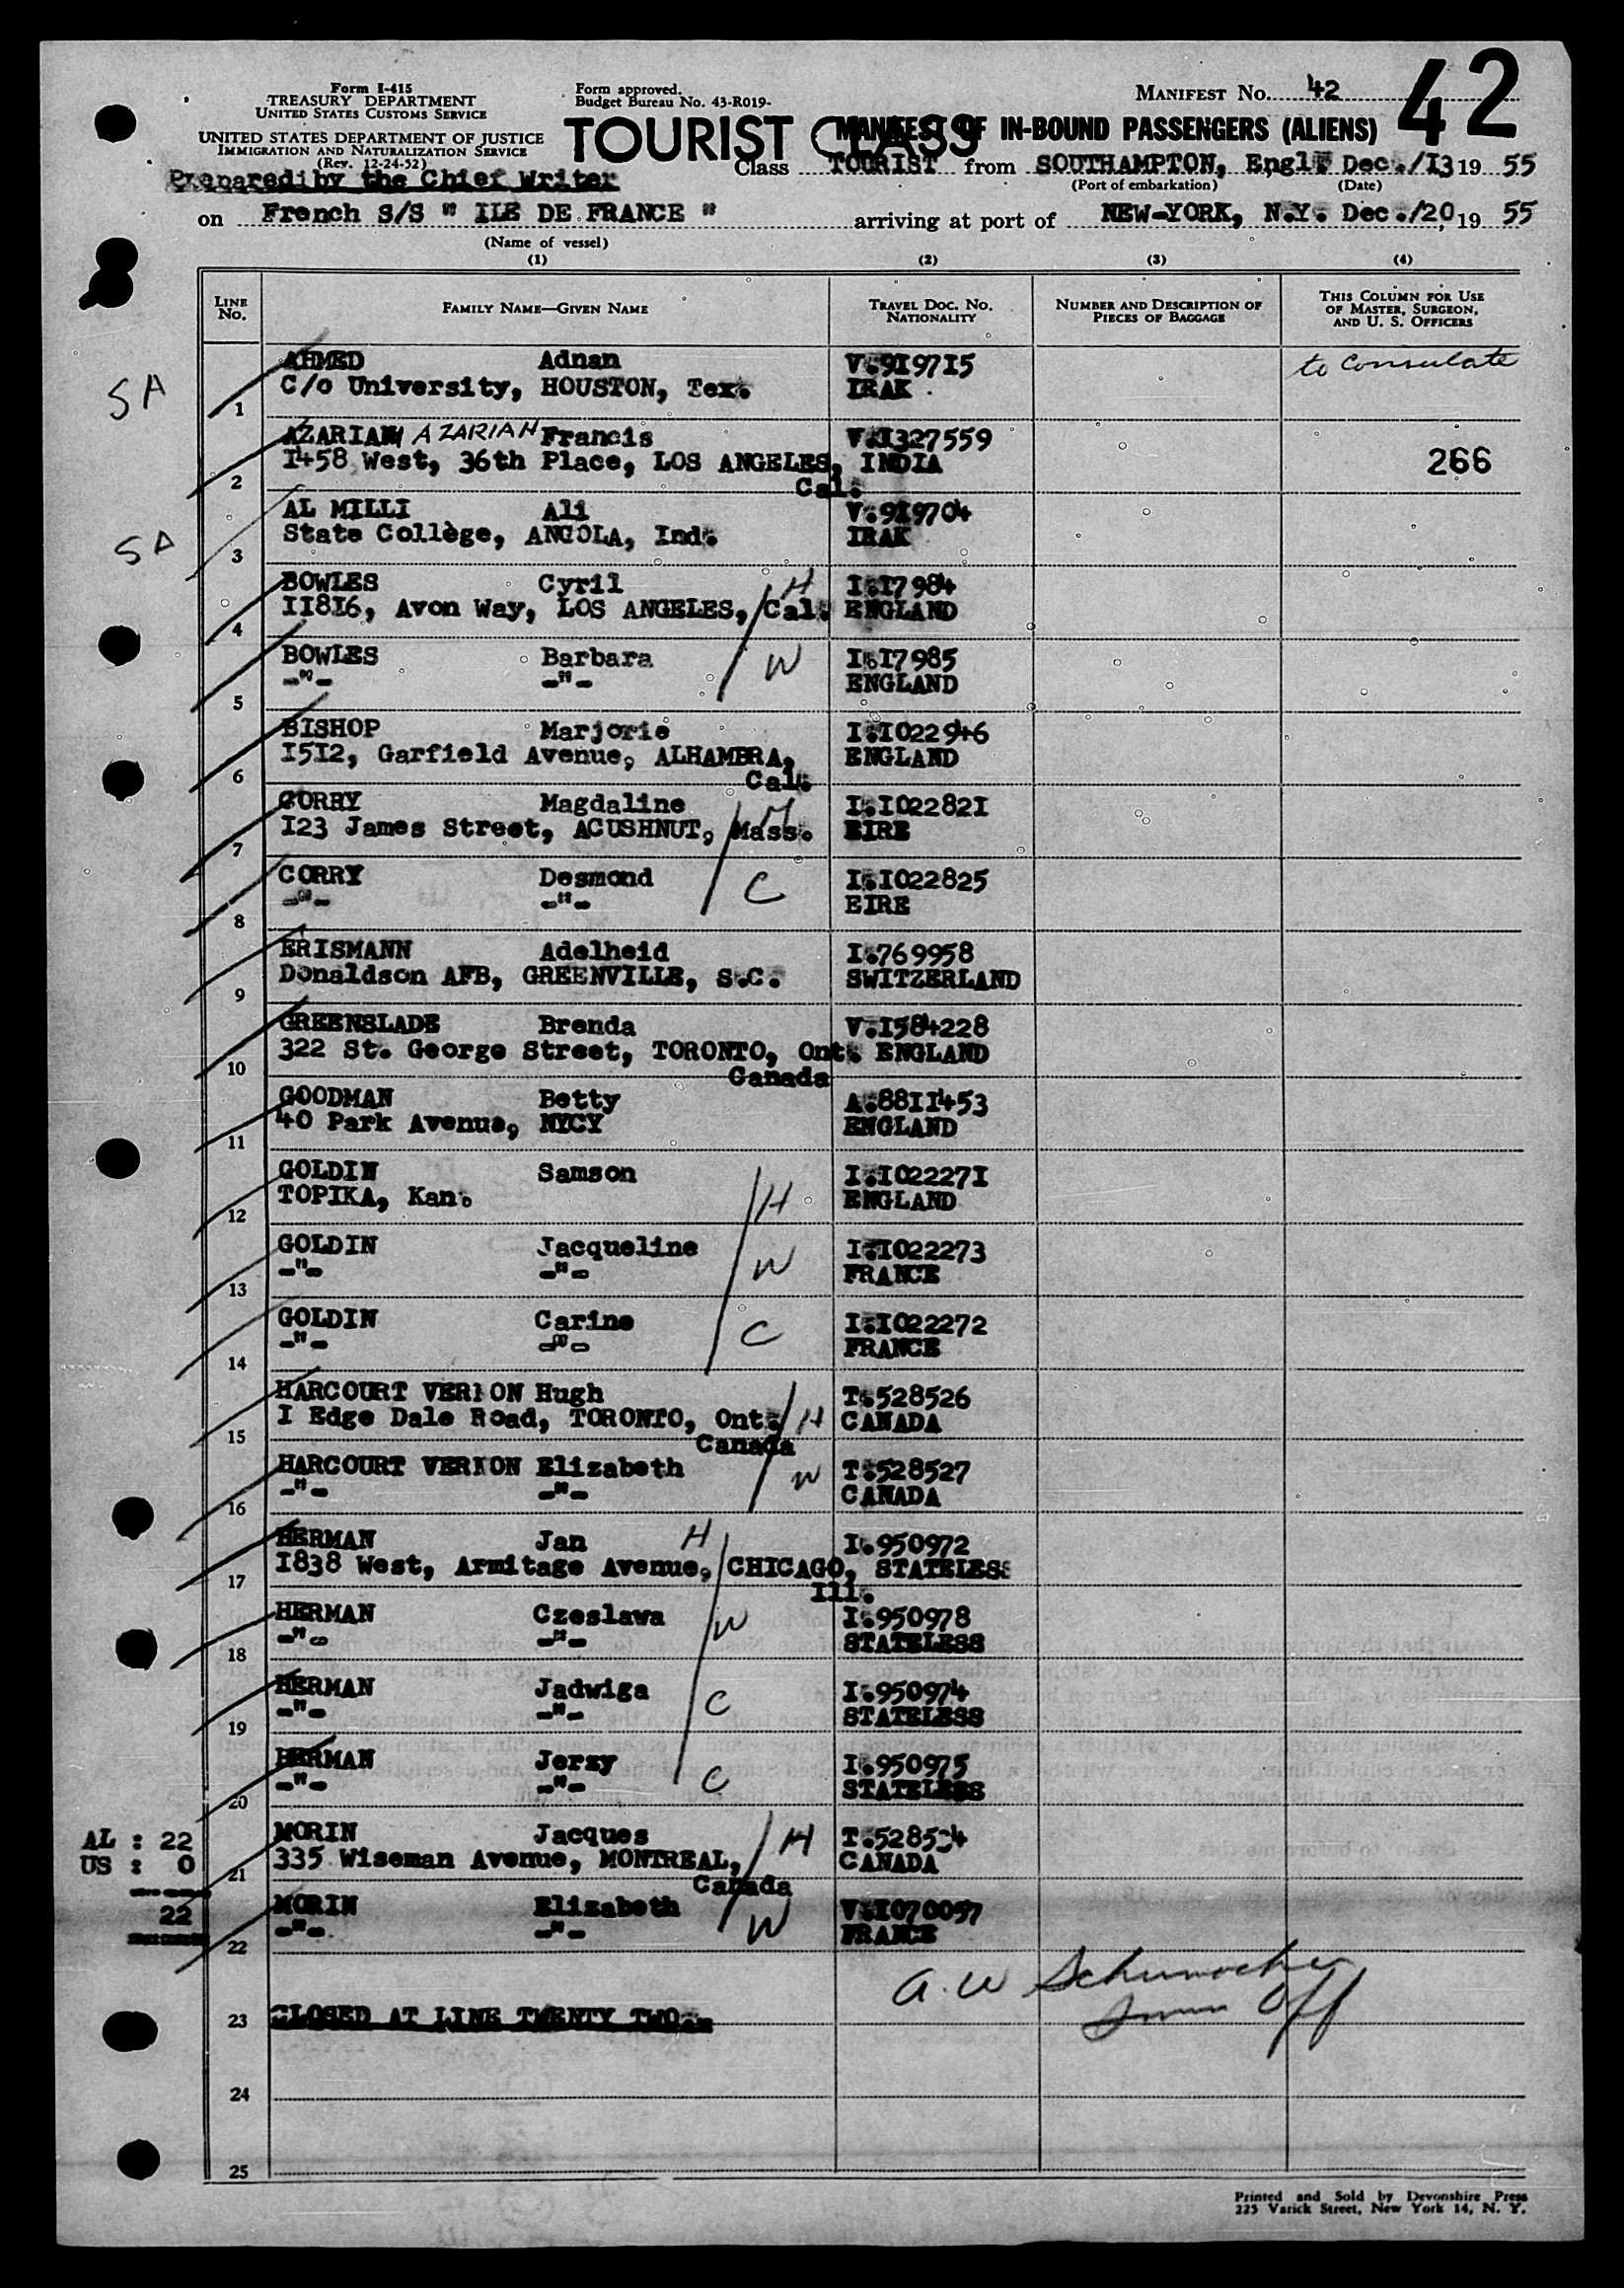 42
Form I-415
TREASURY DEPARTMENT
UNITED STATES CUSTOMS SERVICE
UNITED STATES DEPARTMENT OF JUSTICE
IMMIGRATION AND NATURALIZATION SERVICE
(Rev. 12-24-52)
Prepared by the Chief Writer
Form approved.
Budget Bureau No. 43-R019-
MANIFEST No. 42
TOURIST CLASS
MANIFEST OF IN-BOUND PASSENGERS (ALIENS)
Class TOURIST from SOUTHAMPTON, Engl. Dec./I3 19 55
(Port of embarkation) (Date)
on French S/S " ILE DE FRANCE " arriving at port of NEW-YORK, N.Y. Dec./20, 19 55
(Name of vessel)
(1) (2) (3) (4)
LINE No. FAMILY NAME—GIVEN NAME TRAVEL DOC. NO. NATIONALITY NUMBER AND DESCRIPTION OF PIECES OF BAGGAGE THIS COLUMN FOR USE OF MASTER, SURGEON, AND U. S. OFFICERS
AHMED Adnan V.9I97I5 to Consulate
SA 1 C/o University, HOUSTON, Tex. IRAK
AZARIAH AZARIAH Francis V.I327559
2 I458 West, 36th Place, LOS ANGELES, INDIA 266
Cal.
AL MILLI Ali V.9I9704
SA 3 State Collège, ANGOLA, Ind. IRAK
BOWLES Cyril H I.I7984
4 II8I6, Avon Way, LOS ANGELES, Cal. ENGLAND
BOWLES Barbara W I.I7985
5 -"- -"- ENGLAND
BISHOP Marjorie I.I022946
6 I5I2, Garfield Avenue, ALHAMBRA, ENGLAND
Cal.
CORRY Magdaline M I.I02282I
7 I23 James Street, ACUSHNUT, Mass. EIRE
CORRY Desmond C I.I022825
8 -"- -"- EIRE
ERISMANN Adelheid I.769958
9 Donaldson AFB, GREENVILLE, S.C. SWITZERLAND
GREENSLADE Brenda V.I584228
10 322 St. George Street, TORONTO, Ont. ENGLAND
Canada
GOODMAN Betty A.88II453
11 40 Park Avenue, NYCY ENGLAND
GOLDIN Samson H I.I02227I
12 TOPIKA, Kan. ENGLAND
GOLDIN Jacqueline W I.I022273
13 -"- -"- FRANCE
GOLDIN Carine C I.I022272
14 -"- -"- FRANCE
HARCOURT VERNON Hugh H T.528526
15 I Edge Dale Road, TORONTO, Ont. CANADA
Canada
HARCOURT VERNON Elizabeth W T.528527
16 -"- -"- CANADA
HERMAN Jan H I.950972
17 I838 West, Armitage Avenue, CHICAGO, STATELESS
Ill.
HERMAN Czeslawa W I.950978
18 -"- -"- STATELESS
HERMAN Jadwiga C I.950974
19 -"- -"- STATELESS
HERMAN Jerzy C I.950975
20 -"- -"- STATELESS
MORIN Jacques H
21 335 Wiseman Avenue, MONTREAL, CANADA
Canada
MORIN Elizabeth W V.I070057
22 -"- -"- FRANCE
AL : 22
US : 0
22
A. W Schumacher
Imm Off
23 CLOSED AT LINE TWENTY TWO.-
24
25
Printed and Sold by Devonshire Press
225 Varick Street, New York 14, N. Y.